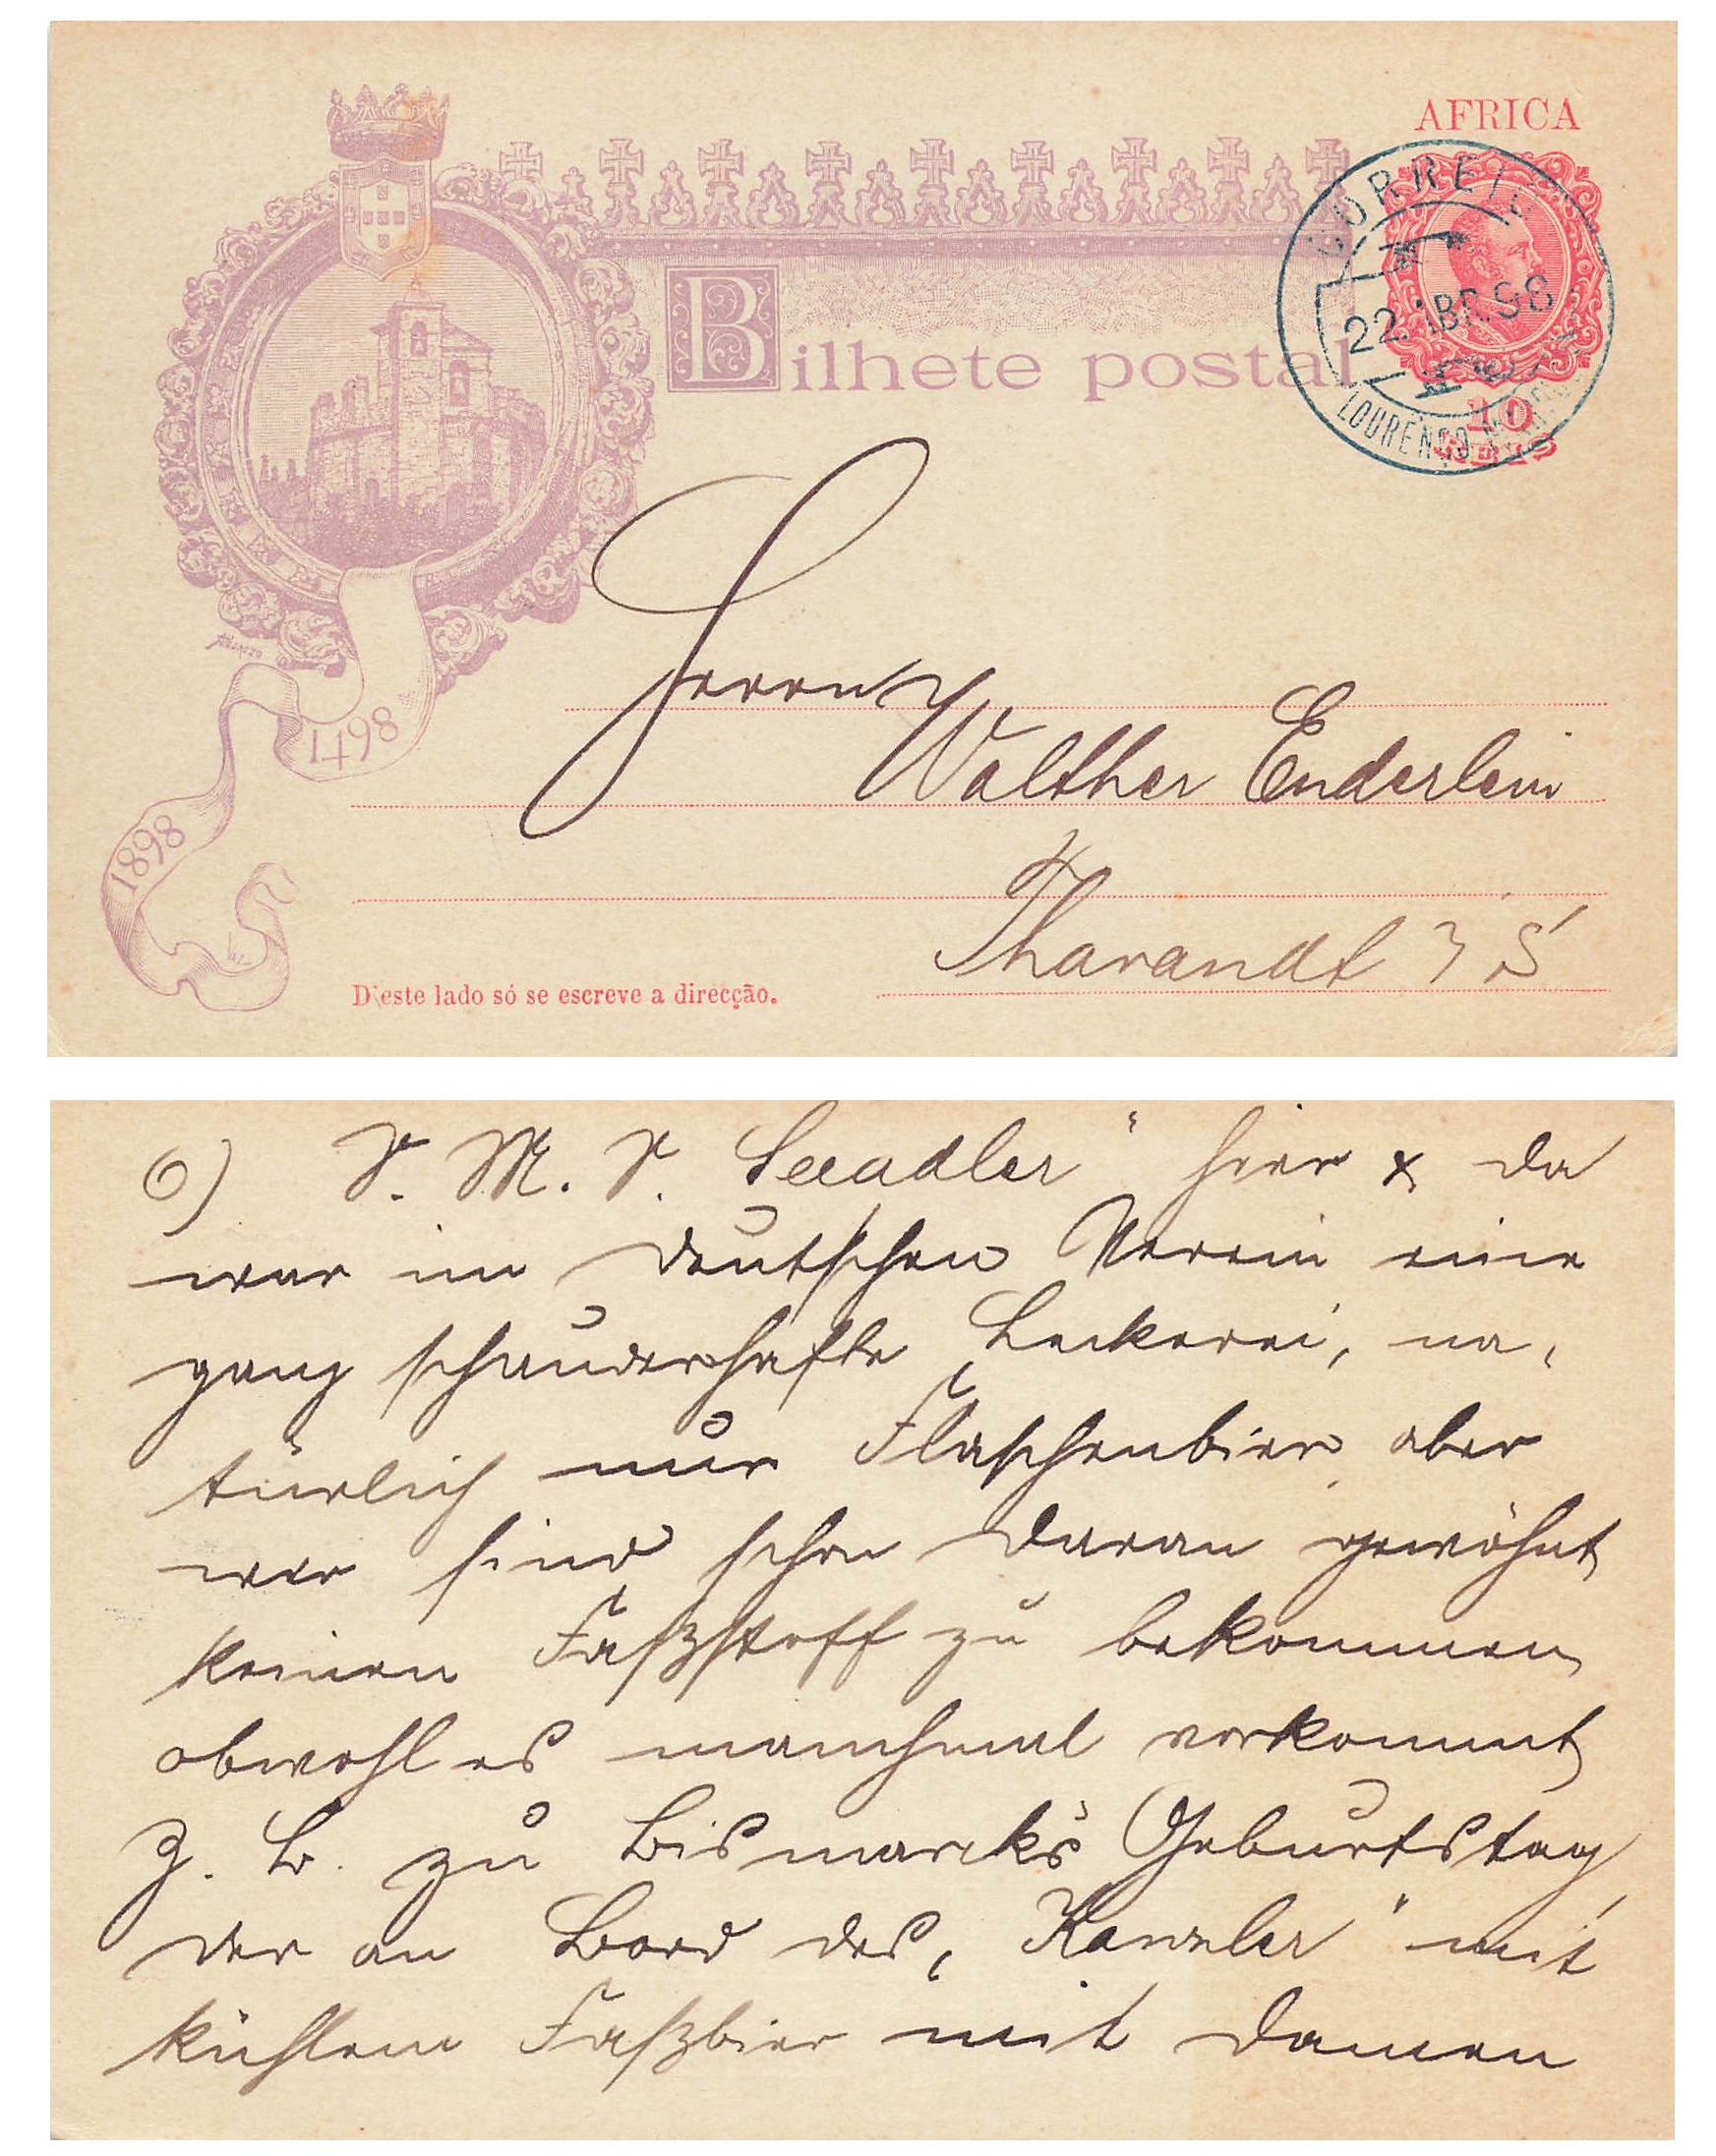 AFRICA
CORREIO
22 ABR. 98
LOURENÇO MARQUES
Bilhete postal
10
REIS
1498
1898
Herrn
Walther Enderlein
Tharandt i/S
D'este lado só se escreve a direcção.
6) S. M. S. Seeadler" hier & da
war im deutschen Verein eine
ganz schauderhafte Leckerei, na„
türlich nur Flaschenbier, aber
wir sind schon daran gewöhnt
keinen Faßstoff zu bekommen,
obwohl es manchmal vorkommt
z. B. zu Bismarck's Geburtstag,
der an Bord des „Kanzler" mit
kühlem Faßbier mit Damen